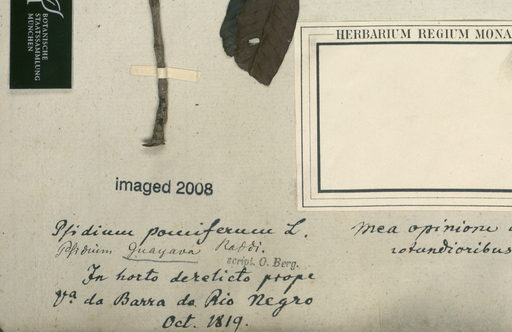 BOTANISCHE
STAATSSAMMLUNG
MÜNCHEN
HERBARIUM REGIUM MONA
imaged 2008
Psidium pomiferum L.
Psidium Guayava Raddi.
script. O. Berg.
In horto derelicto prope
Va da Barra do Rio Negro
Oct. 1819.
Mea opinione
rotundioribus